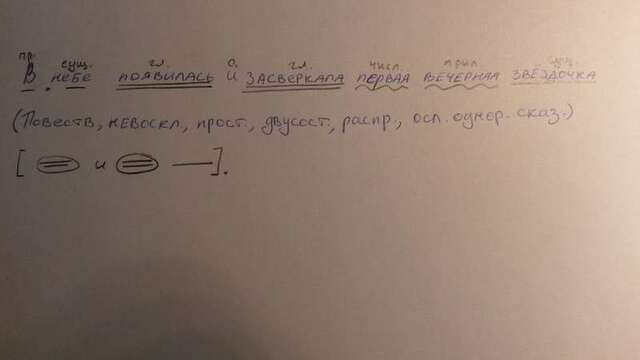 пр. сущ. гл. с. гл. числ. прил. сущ.
В небе появилась и засверкала первая вечерняя звёздочка
(Повеств., невоскл., прост., двусост., распр., осл. однор. сказ.)
[ и ].